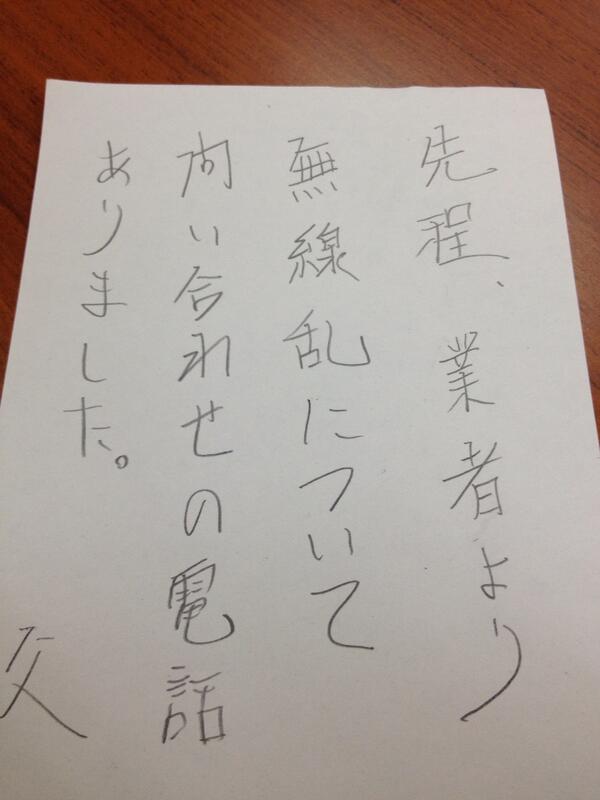 先程、業者より
無線乱について
問い合わせの電話
ありました。